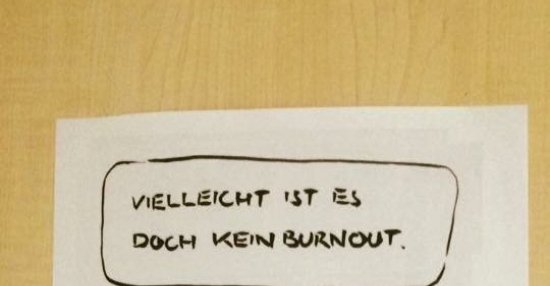 VIELLEICHT IST ES
DOCH KEIN BURNOUT.